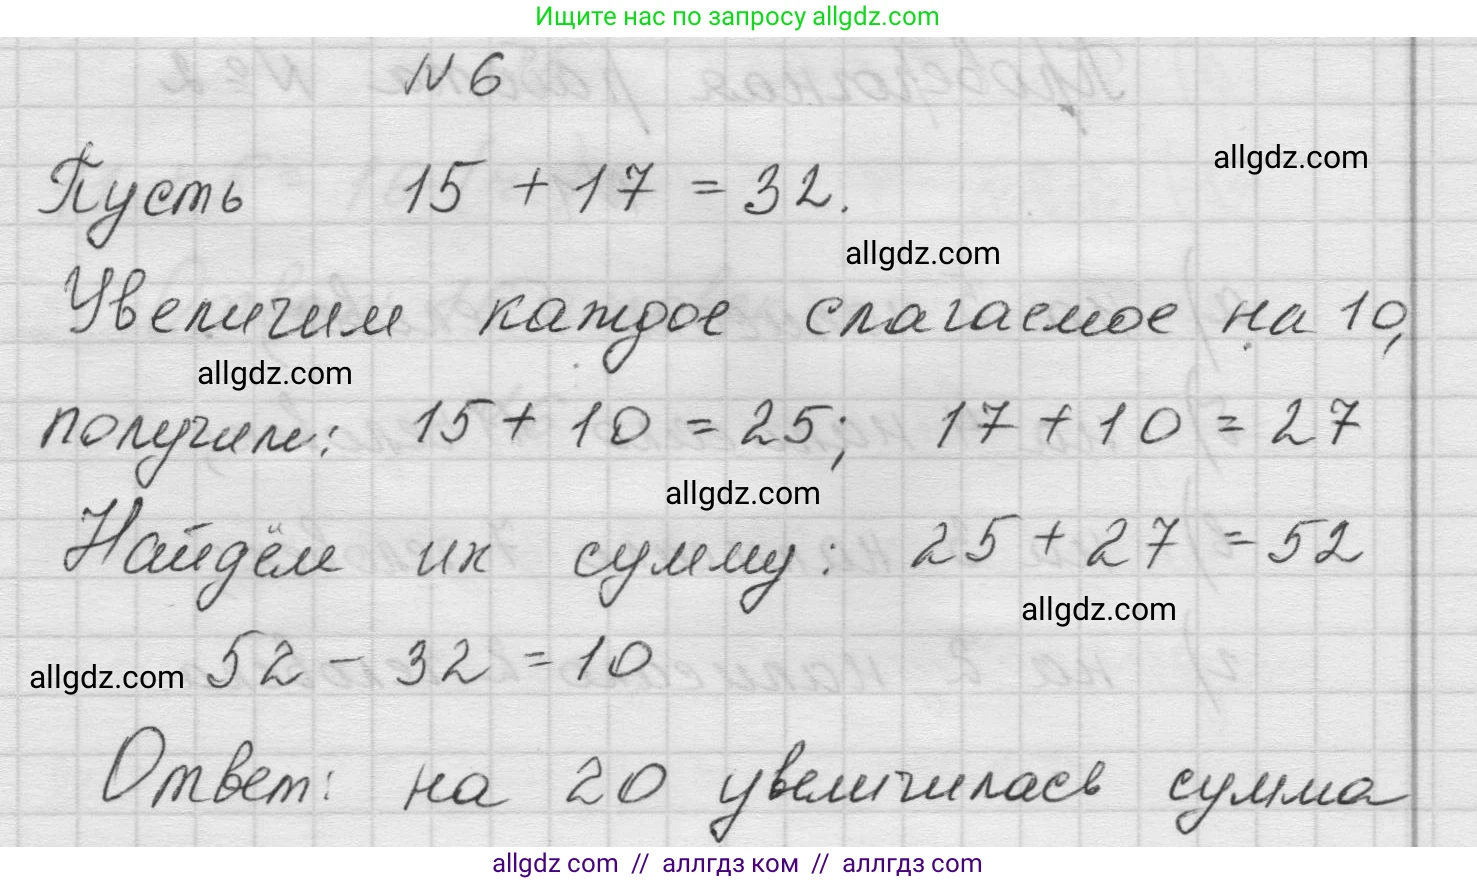 Ищите нас по запросу allgdz.com
N 6
Пусть 15 + 17 = 32.
allgdz.com
allgdz.com
Увеличим каждое слагаемое на 10,
allgdz.com
получим: 15 + 10 = 25; 17 + 10 = 27
allgdz.com
Найдём их сумму: 25 + 27 = 52
allgdz.com
allgdz.com 52 - 32 = 10
Ответ: на 20 увеличилась сумма
allgdz.com // аллгдз ком // аллгдз com